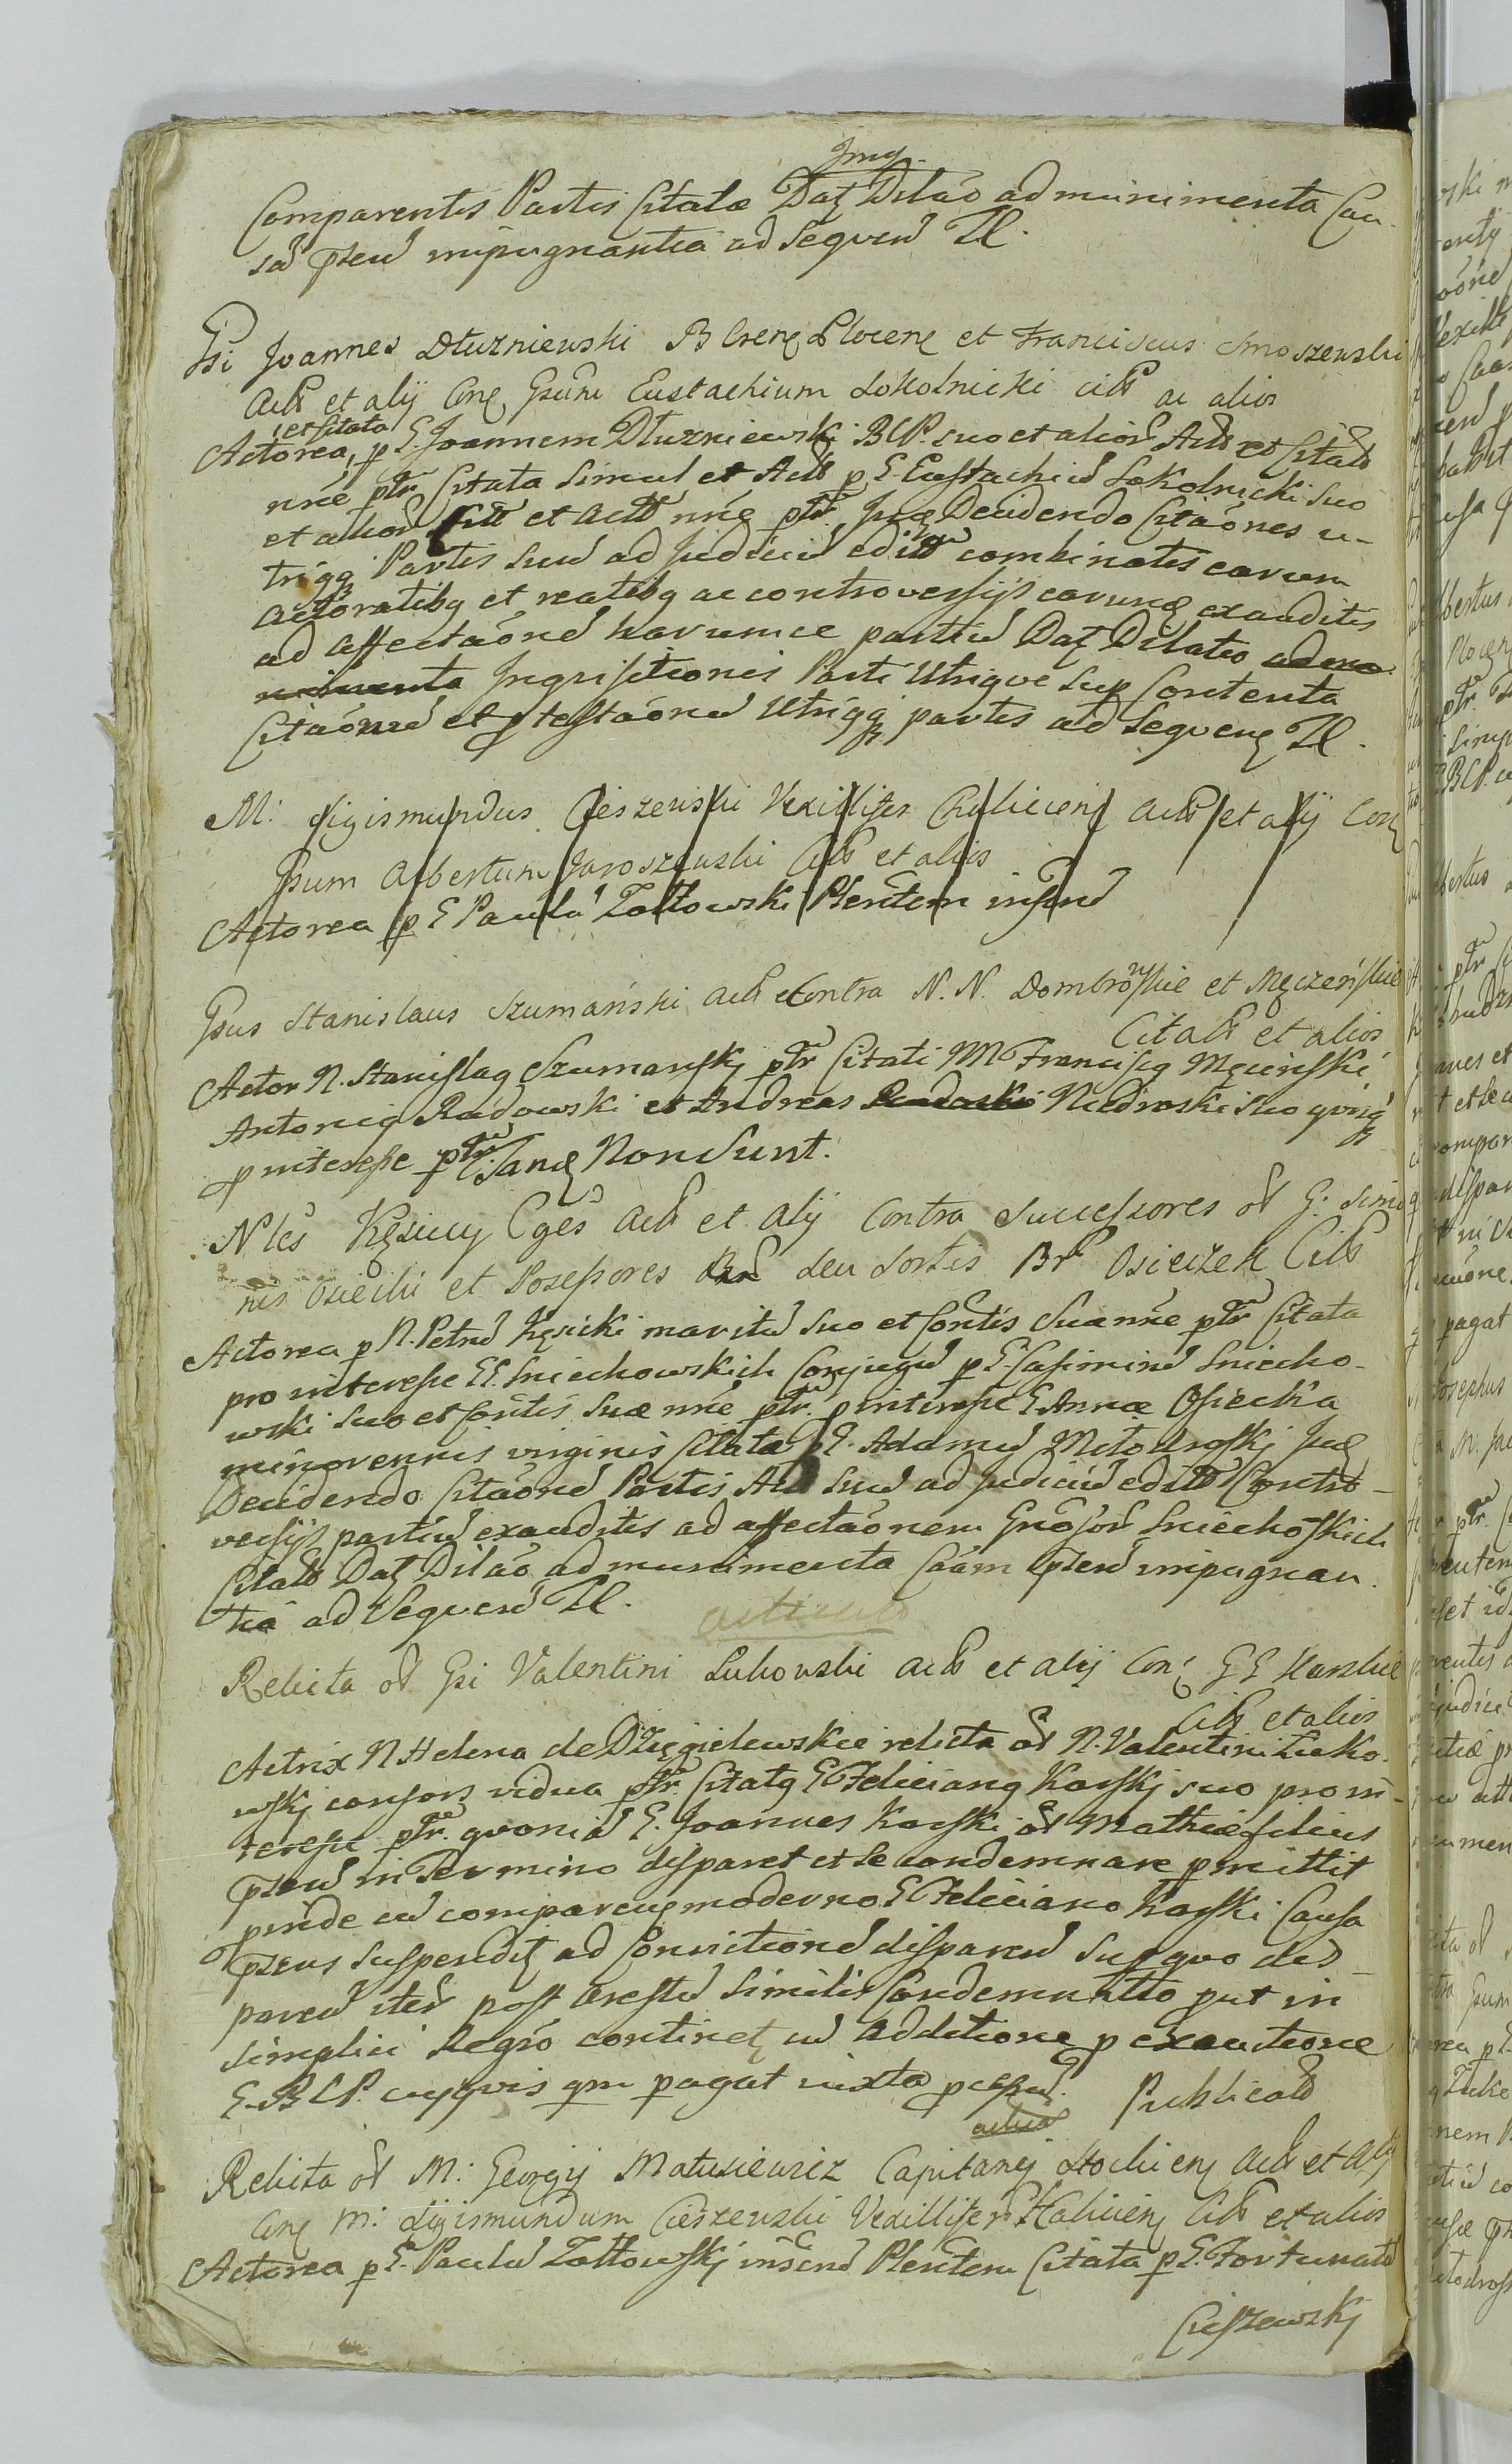 Jmq.
Comparentis Partis Citatæ Datʒ Dilaõ ad munimenta Cau-
sã pseñ impugnantia ad Sequeñ Tl.
Gsi Joannes Dłuzniewski B Crenʒ Plocenʒ et Franciscus Smoszewski
Actõ et alij Conʒ Gsum Eustachium Sokolnicki Citõ ac alios
et Citata
Actorea, p G. Joannem Dłuzniewski BCP. suo et aliorũ Actõ et Citatõ
nñe ptr Citata simul et Actõ p G. Eustachiũ Sokolnicki suo
et aliorũ Citõ et Actõ nñe ptr Judʒ Decidendo Citaõnes u-
triqqʒ Partis suũ ad Judiciũ editõ combinatis earum
actoratibq et reatibq ac controversijs earumqʒ exauditis
ad affectaõnẽ harumce partiũ Datʒ Dilatio ad mu-
nimenta Inquisitionis Parti Utrique Sup Contenta
Citaõnũ et ptestaõnũ Utriqqʒ partis ad Sequenʒ Tl.
M: Sigismundus Cieszewski Vexillifer Halicienʒ Actõ et alij Conʒ
Gsum Albertum Jaroszewski Citõ et alios
Actorea p G Paulũ Zołtowski Plentem insenũ
Gsus Stanislaus Szumański Actõ Contra N. N. Dombrowskie et Męczeńskie
Citatõ et alios
Actor N. Stanislaq Szumanskj ptr Citati M Franciscq Męcinski
Antoniq Radowski et Andreas Niedroski suo
p interesse ptr. Tanqʒ Non Sunt.
Nles Kęsiccy Cges Actõ et alij Contra Successores oł G: Simo
nis Osiecki et Possessores seu Sortis Br Osieczek Citõ
Actorea p N. Petrũ Kęsicki maritũ suo et Contis Suæ nñe ptr Citata
pro interesse GG. Sniechowskich Conjugũ p G. Casimirũ Sniecho-
wski suo et Contis Suæ nñe ptr. p interesse G Annæ Osiecka
minorennis virginis Citata p G. Adamũ Młodroskj Judʒ
Decidendo Citaõnẽ Partis Actõ Suũ ad Judiciũ editõ Contro-
versijs partiũ exauditis ad affectaõnem Gnõsorũ Sniechoskich
Citatõ Datʒ Dilaõ ad munimenta Caãm pseñ impugnan-
tia ad Sequenũ Tl.
Relicta oł Gsi Valentini Lukowski Actõ et alij Conʒ GG Karskie
Citõ et alios
Actrix N Helena de Dzięgielewskie relicta oł N. Valentini Łuko-
wskj consors vidua ptr. Citatq G Felicianq Karskj suo pro in-
teresse ptr. quoniã G. Joannes Karski oł Mathiæ filius
pseñ in Termino disparet et se condemnare pmittit
pinde cũ comparenʒ moderno G Feliciano Karski Causa
psens suspenditʒ ad Convictionẽ disparenũ Sup quo dis-
parenũ iterũ post arestũ similis Condemnatio put in
simplici Regrõ continetʒ cũ additione p executione
G. BCP. cujusvis qm pagat iuxta Publicatõ
Relicta oł M: Georgij Matusiewicz Capitanej Stoclienʒ Actõ et alij
Conʒ M: Sigismundum Cieszewski Vexilliferũ Halicienʒ Citõ et alios
Actorea p G. Paulũ Zołtowskj insenũ Plentem Citata p G. Fortunatũ
Cieszewskj